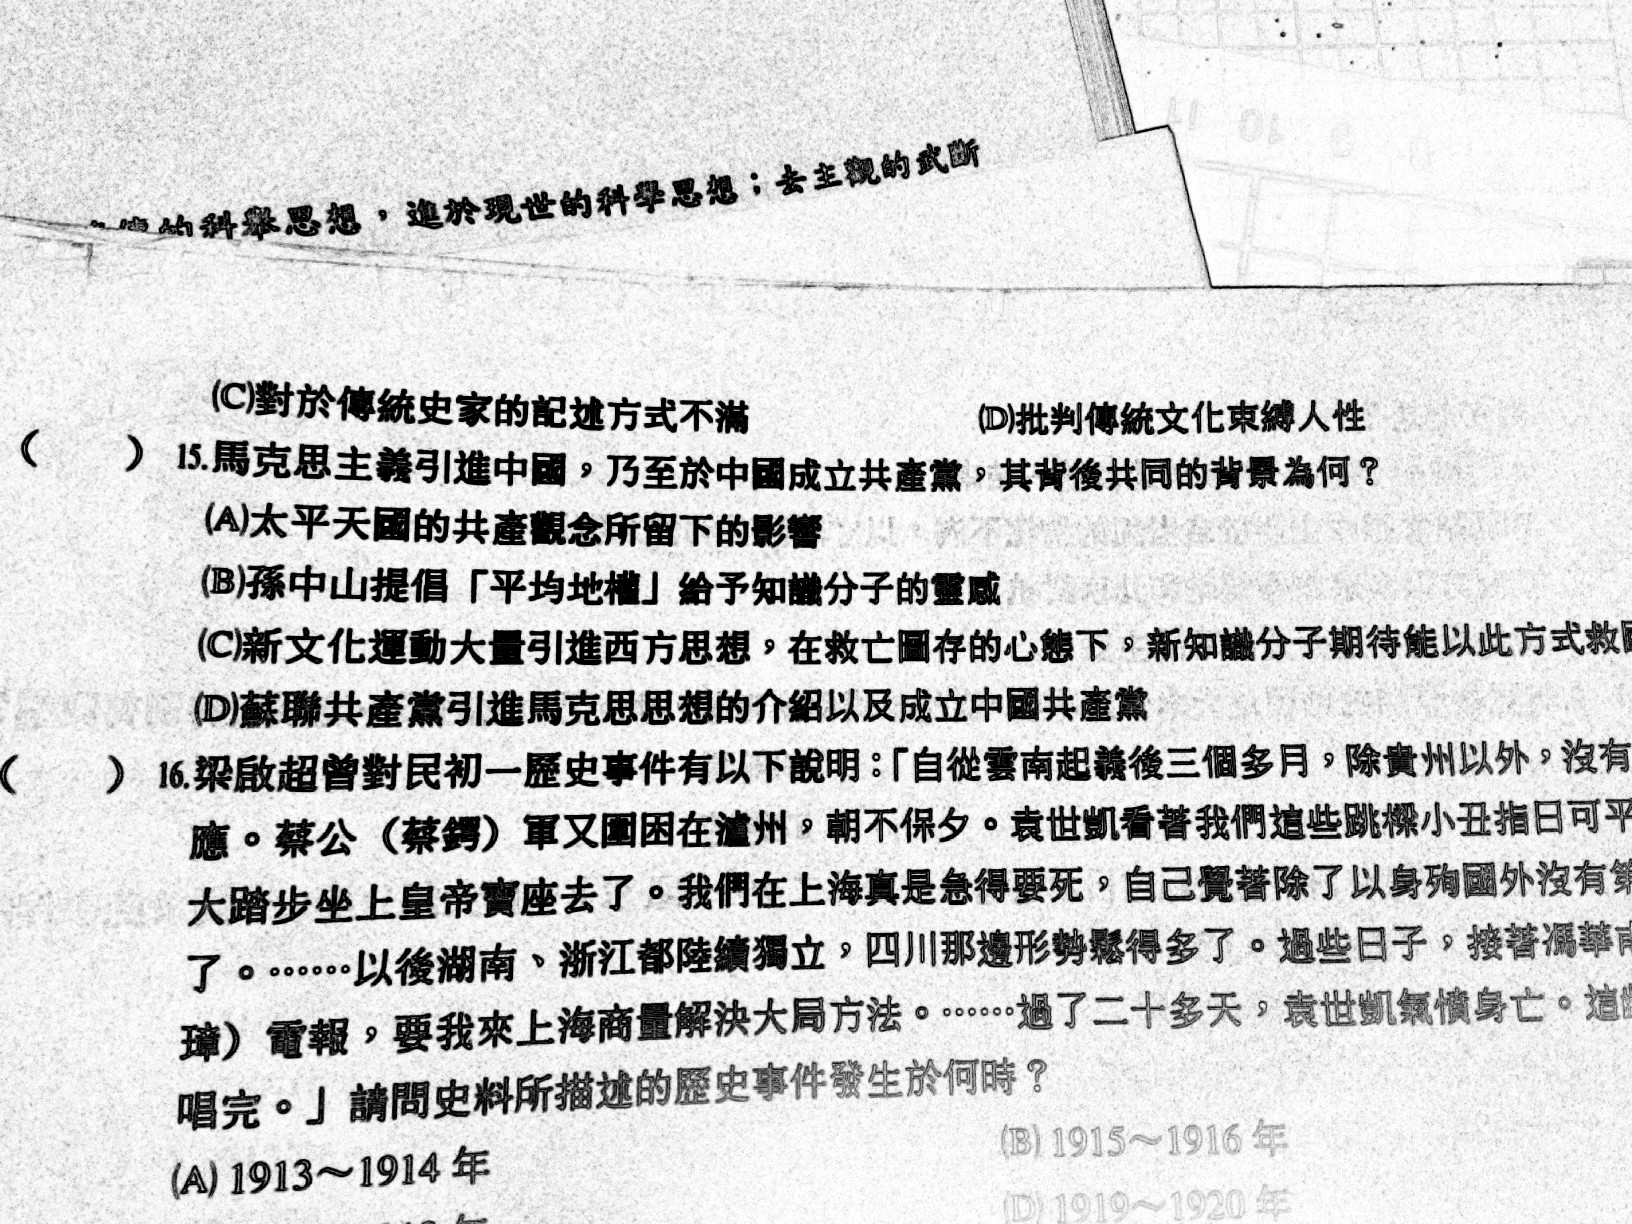 的科學思想，進於現世的科學思想；去主觀的武斷
(C)對於傳統史家的記述方式不滿 (D)批判傳統文化束縛人性
( ) 15.馬克思主義引進中國，乃至於中國成立共產黨，其背後共同的背景為何？
(A)太平天國的共產觀念所留下的影響
(B)孫中山提倡「平均地權」給予知識分子的靈感
(C)新文化運動大量引進西方思想，在救亡圖存的心態下，新知識分子期待能以此方式救
(D)蘇聯共產黨引進馬克思思想的介紹以及成立中國共產黨
( ) 16.梁啟超曾對民初一歷史事件有以下說明：「自從雲南起義後三個多月，除貴州以外，沒有
應。蔡公（蔡鍔）軍又圍困在瀘州，朝不保夕。袁世凱看著我們這些跳樑小丑指日可平
大踏步坐上皇帝寶座去了。我們在上海真是急得要死，自己覺著除了以身殉國外沒有第
了。……以後湖南、浙江都陸續獨立，四川那邊形勢鬆得多了。過些日子，接著馮華
璋）電報，要我來上海商量解決大局方法。……過了二十多天，袁世凱氣憤身亡。這
唱完。」請問史料所描述的歷史事件發生於何時？
(A) 1913～1914 年 (B) 1915～1916 年
(D) 1919～1920 年